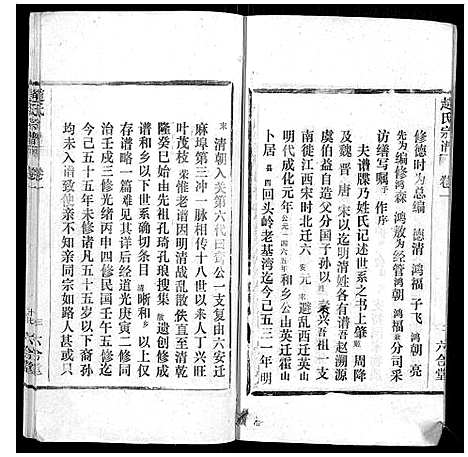 趙氏宗譜 卷一 六合堂
修德時为总編 德清 鸿福 子飞 鸿朝 亮
先为編修鸿森 鸿放为经管鸿朝 鸿福兼分司采
访缮写嘱予作序
夫谱牒乃姓氏记述世系之书上肇 周降
及魏 晋 唐 宋以迄明清姓各有谱吾赵溯源
虞伯益自造父分国子孙以 来兴吾祖一支
南徙江西宋时北迁六安 元末避乱西迁英山
明代成化元年公元一四六五年和乡公由英迁霍山
卜居县四四回头岭老基湾迄今已五二一年明
末清朝入英第六代日 公一支复由六安迁
麻埠第三冲一脉相传十八世人丁兴旺
叶茂枝荣惟老谱因明清战乱散佚直至清乾
隆癸巳始由先祖孔琦孔琅搜集散遗创修成
谱和乡以下世系确切条目清晰和乡以上仅
存谱略一篇难见其详后经道光庚寅二修同
治壬戌三修光绪丙申四修民国壬午五修迄
今已五十五年未修诸凡五十五岁以下裔孙
均未入谱致使亲不知亲同宗如路人甚或只
趙氏宗譜 卷一 六合堂